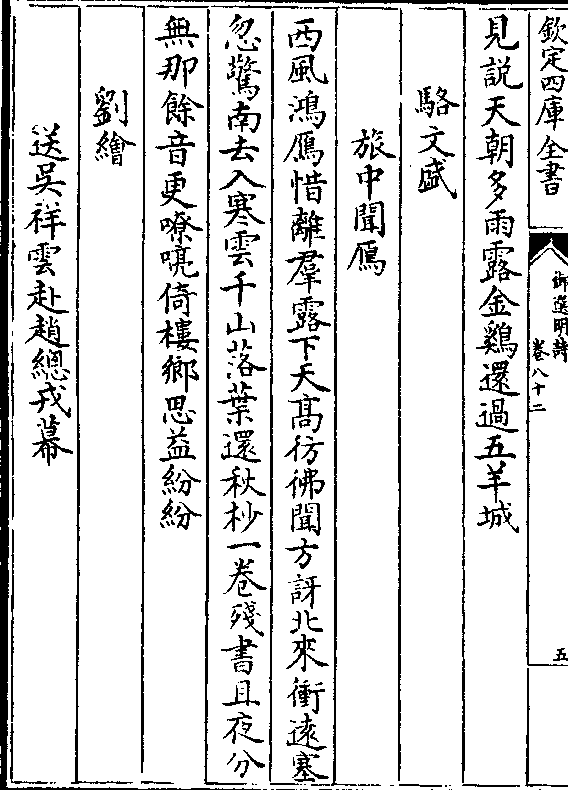 欽定四庫全書
御選明詩
卷八十二
五
見説天朝多雨露金鷄還過五羊城
駱文盛
旅中聞鴈
西風鴻鴈惜離羣露下天髙彷彿聞方訝北來衝遠塞
忽驚南去入寒雲千山落葉還秋杪一卷殘書且夜分
無那餘音更嘹喨倚樓鄉思益紛紛
劉繪
送吳祥雲赴趙總戎幕